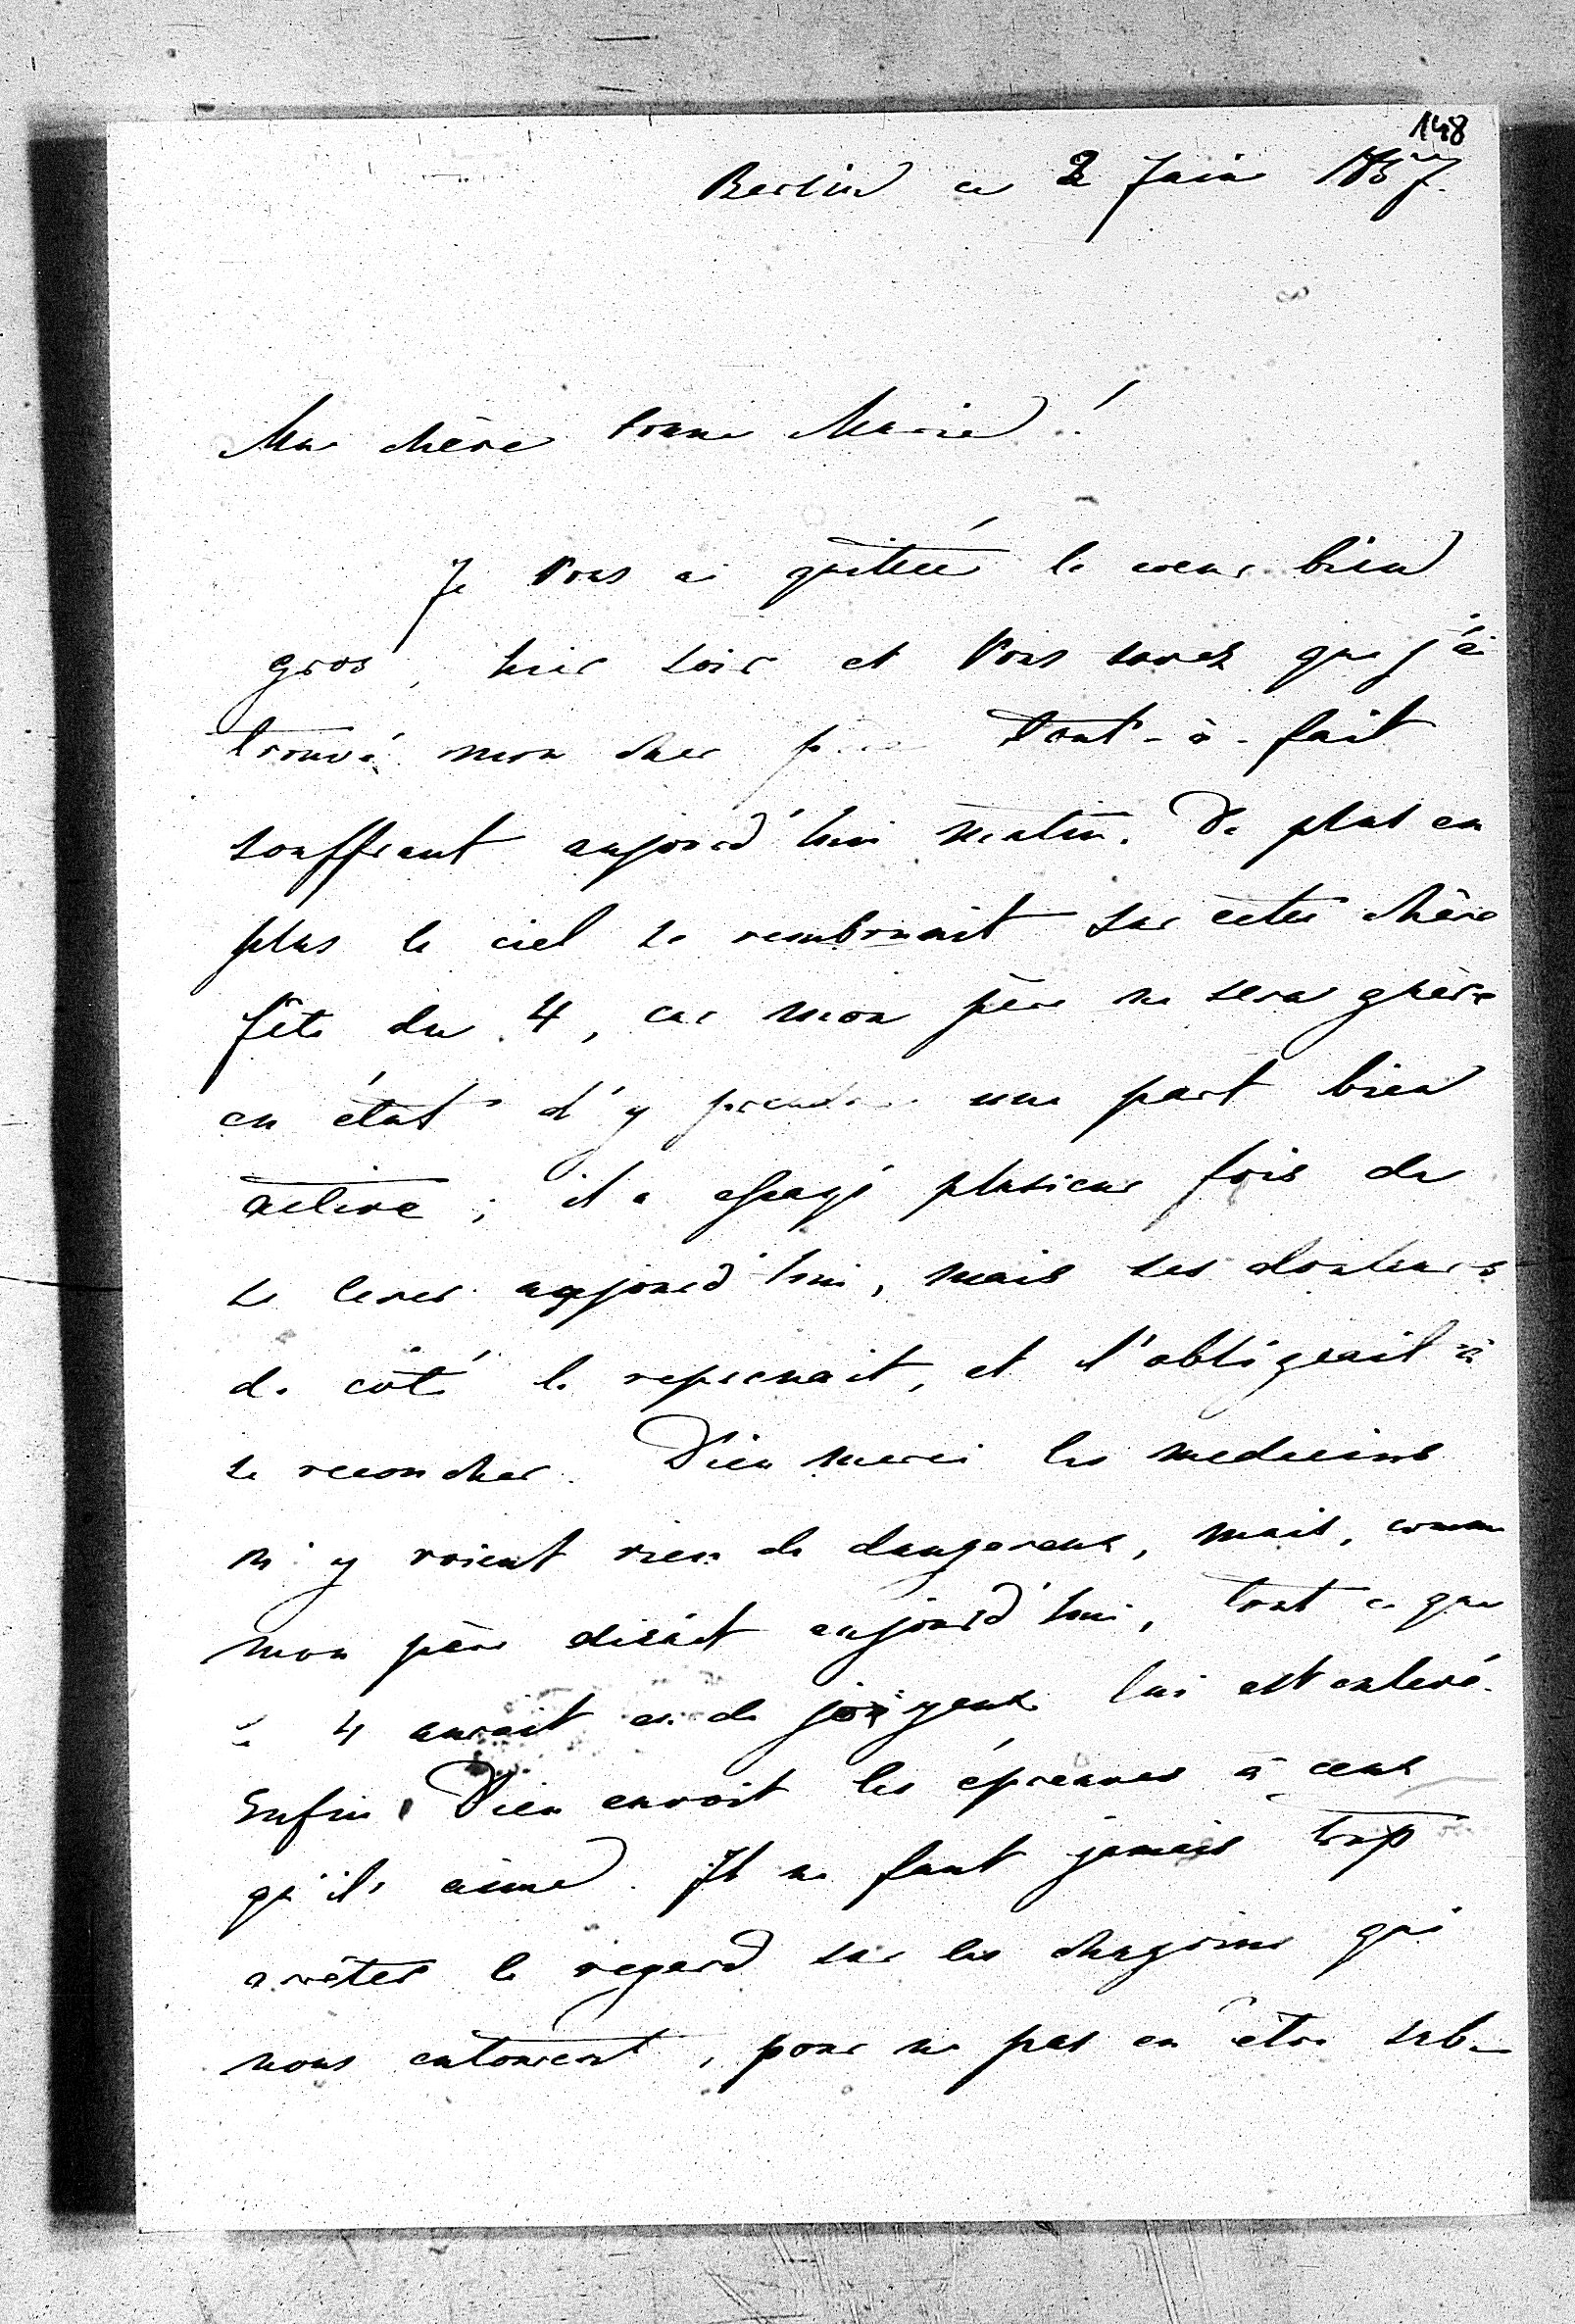 148
Berlin ce 2 Juin 1857.
Ma chère bonne Marie!
Je Vous ai quittée le coeur bien
gros, hier soir et Vous savez que j'ai
trouvé mon cher père tout-à-fait
souffrant aujourd'hui matin. De plus en
plus le ciel se rembrunit sur cette chère
fête du 4, car mon père ne sera guère
en état d'y prendre une part bien
active; il a essayé plusieurs fois de
se lever aujourd'hui, mais ses douleurs
de côté le reprenait, et l'obligeait à
se recoucher. Dieu merci les medecins
n'y voient rien de dangereux, mais, comme
mon père disait aujourd'hui, tout ce que
le 4 aurait eu de joyeux lui est enlevé.
Enfin Dieu envoit les épreuves à ceux
qu'il aime. Il ne faut jamais trop
arrêter le regard sur les chagrins qui
nous entourent, pour ne pas en être sub-